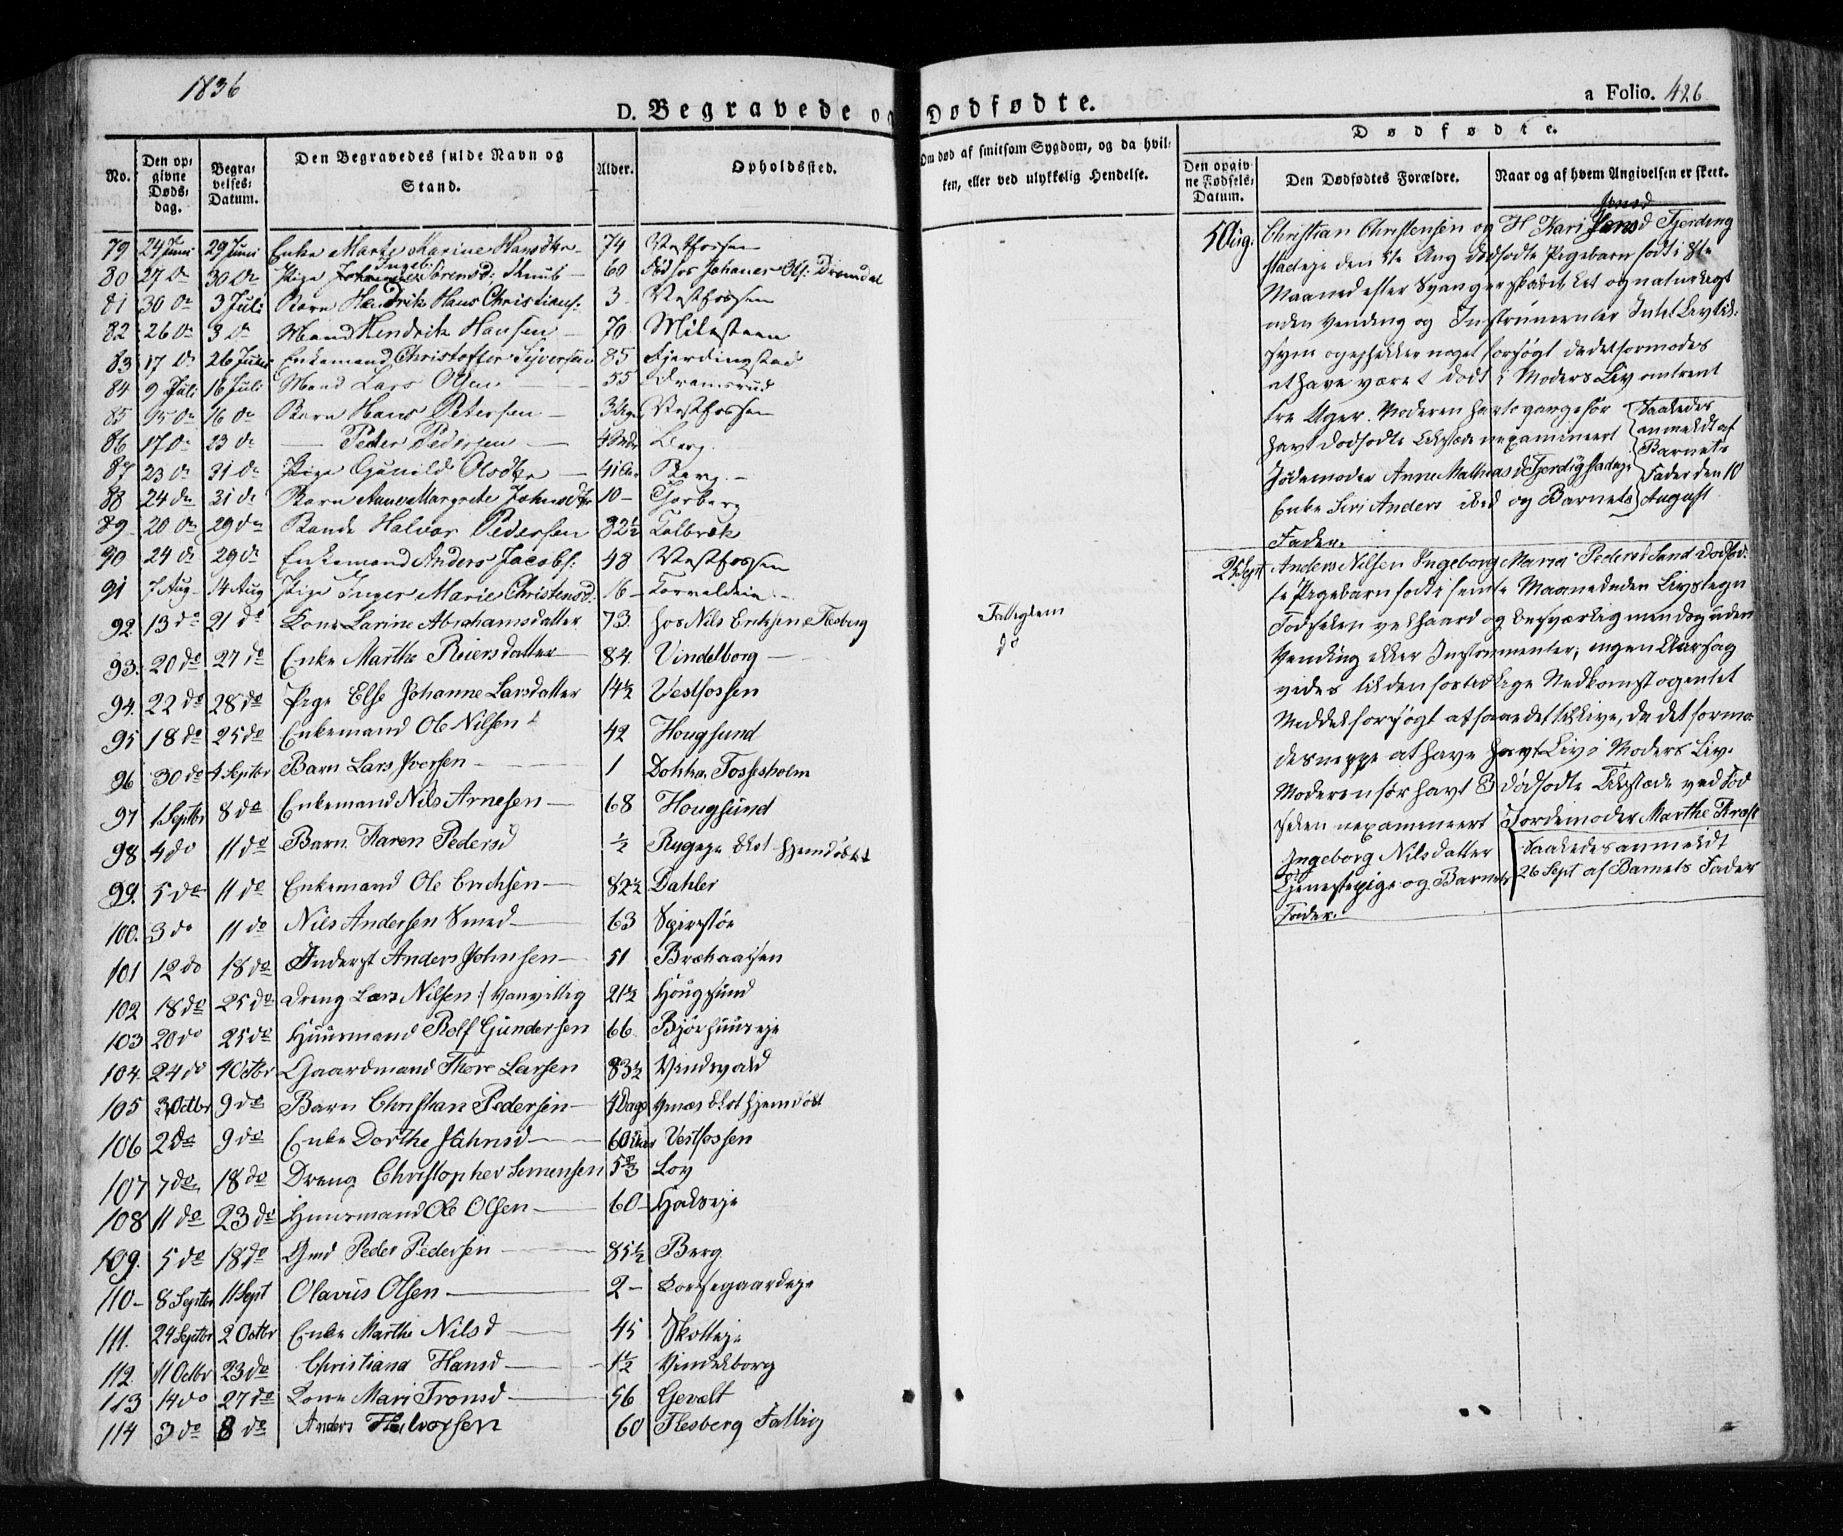 1836
D. Begravede og Dødfødte.
a Folio. 426
No.
Den opgivne Døds-dag.
Begravelses-Datum.
Den Begravedes fulde Navn og Stand.
Alder.
Opholdssted.
Om død af smitsom Sygdom, og da hvilken, eller ved ulykkelig Hendelse.
Dødfødte.
Den opgivne Fødsels-Datum.
Den Dødfødtes Forældre.
Naar og af hvem Angivelsen er skeet.
79 24 Juni 29 Juni Enke Marte Karine Hansdtr 74 Vestfossen
80 27 do 30 do Pige Ingeb: Sørensd: 60
81 30 do 3 Juli Barn Hendrik Hans Christians: 3 Vestfossen
82 26 do 3 do Mand Hendrik Hansen 70 Milesteen
83 17 do 26 Juni Enkemand Christoffer Syversen 85 Fjerdingstad
84 9 Juli 16 Juli Mand Lars Olsen 55 Dramsrud
85 15 do 16 do Barn Hans Petersen 3 Vestfossen
86 17 do 23 do — Peder Pedersen Berg
87 23 do 31 do Pige Gunild Olsdtr 41 Berg
88 24 do 31 do Barn Anne Margrete Johnsdtr 10
89 20 do 29 do Halvor Pedersen 82½ Kolbræk
90 24 do 29 do Enkemand Anders Jacobs: 48 Vestfossen
91 7 Aug 14 Aug Pige Inger Marie Christensd: 16
92 13 do 21 do Kone Karine Abrahamsdatter 73 hos Nils Erichsen Flesberg Fattiglem
93 20 do 27 do Enke Marthe Reiersdatter 84 Vindelborg do
94. 22 do 28 do Pige Else Johanne Larsdatter 14½ Vestfossen
95 18 do 25 do Enkemand Ole Nilsen 42 Hougsund
96 30 do 4 Septbr Barn Lars Iversen 1 Dokka Fossesholm
97 1 Septbr 8 do Enkemand Nils Arnesen 68 Hougsund
98 4 do 11 do Barn Karen Pedersd ½ hjemdøbt
99. 5 do 11 do Enkemand Ole Erichsen 82½ Dahler
100. 3 do 11 do Nils Andersen Smed 63
101 12 do 18 do Inderst Anders Johnsen 51
102 18 do 25 do Dreng Lars Nilsen :/ Vanvittig 21½ Hougsund
103 20 do 25 do Huusmand Rolf Gundersen 66
104. 24 do 4 Octbr Gaardmand Thore Larsen 83½ Vindsvold
105 3 Octbr 9 do Barn Christian Pedersen 4 Dage hjemdøbt
106 2 do 9 do Enke Dorthe Jahnsd 60 Vestfossen
107 7 do 18 do Dreng Christopher Simensen Loy
108 11 do 23 do Huusmand Ole Olsen 60
109. 5 do 18 do Gmd Peder Pedersen 85½ Berg
110 8 Septbr 11 Sept Olavus Olsen 2
111. 24 Septbr 2 Octbr Enke Marthe Nilsd 45
112 11 Octbr 23 do Christiana Hansd 1½ Vindelborg
113 14 do 27 do Kone Mari Tronsd 56 Gevelt
114 3 do 8 do Anders Halvorsen 60 Flesberg Fattig
5 Aug. Christian Christensen og H Kari Jensd Fjerding
stadeje den 5te Aug dødfødte Pigebarn født i 8te
Maaned efter Svangerskabet let og naturligt
uden Vending og Instrumenter Intet Livtik
dedet formodes
at have været dødt i Moders Liv omtrent
tre Uger. Moderen har før
havt dødfødte
Jødemoder Anne Mathiasd Fjerdigstadeje
Enke Siri Anders ibid og Barnets
Fader.
Saaledes
anmeldt af
Barnets
Fader den 10
August
25 Sept Anders Nilsen Ingeborg Maria Pedersd Sand dødfød
te Pigebarn født i femte Maaned uden Livstegn
Fødselen vel haard og besværlig men dog uden
Vending eller Instrumenter, ingen Aarsag
vides til den fortidlige Nedkomst og intet
Middel forsøgt at faae det til Live, da det formo
des neppe at have havt Liv i Moders Liv.
Moderen før havt 3 dødfødte Tilstæde ved Fød
selen Jordemoder Marthe
Ingeborg Nilsdatter
Tjenestepige og Barnets
Fader.
Saaledes anmeldt
26 Sept af Barnets Fader